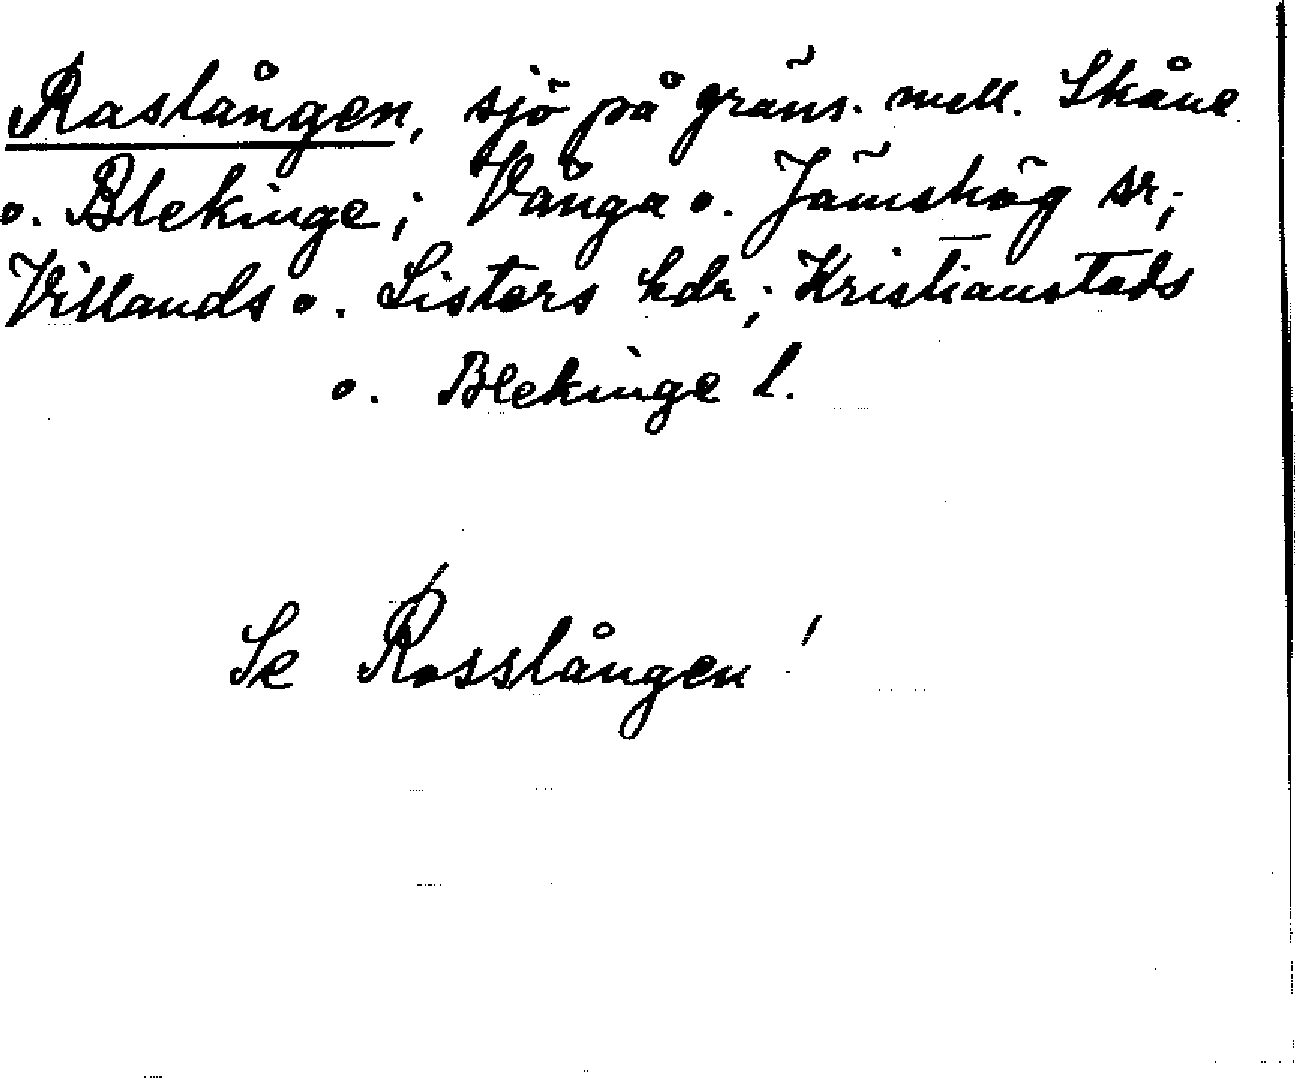 Raslången, sjö på gräns. mell. Skåne
o. Blekinge; Vånga o. Jämshög sr;
Villands o. Listers hdr; Kristianstads
o. Blekinge l.
Se Rosslången!